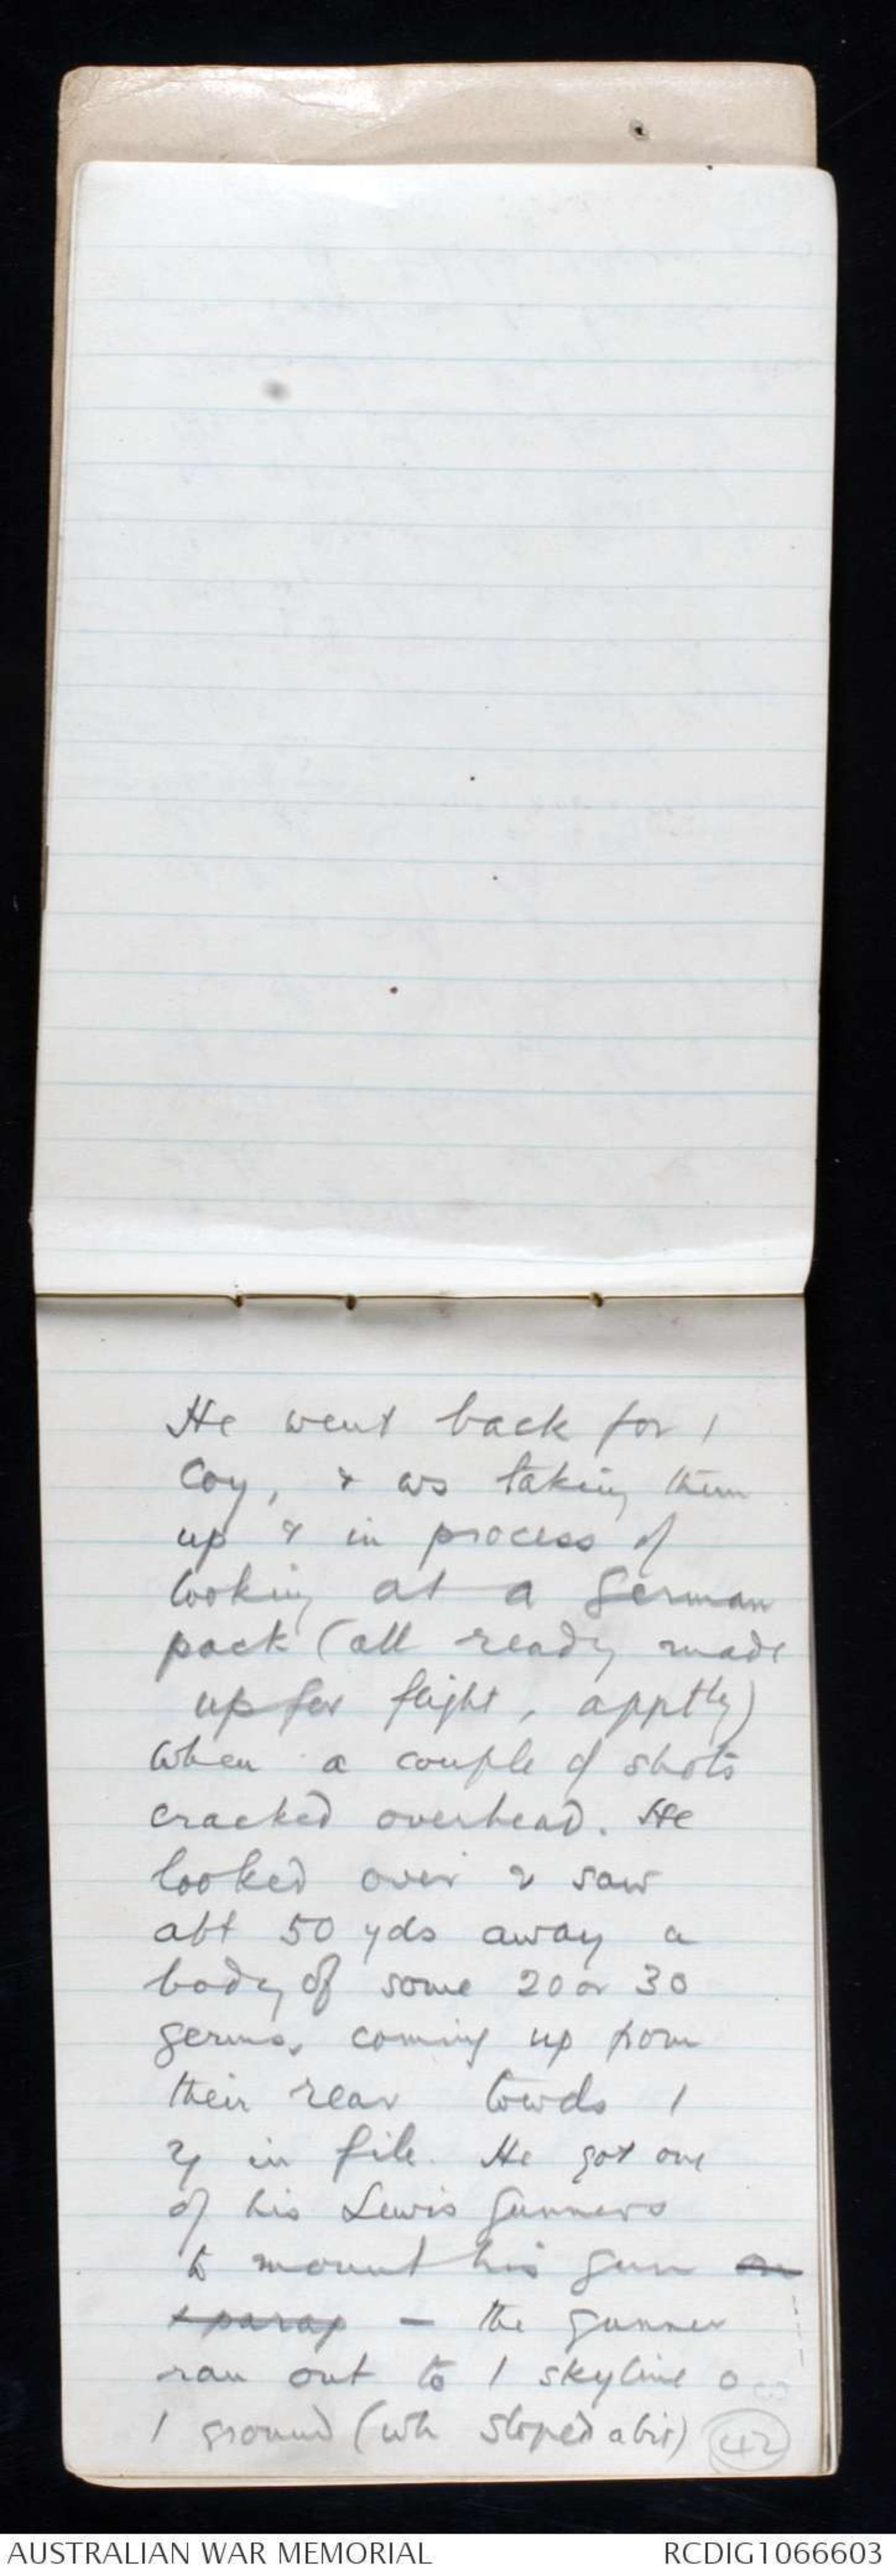 He went back for /
Coy, & ws taking them
up & in process of
looking at a German
pack (all ready made
up for flight, apptly)
when a couple of shots
cracked overhead. He
looked over & saw
abt 50 yds away a
body of some 20 or 30
germs, coming up from
their rear towds /
in file. He got one
of his Lewis Gunners
to mount his gun on
& parap – the gunner
ran out to / skyline o
/ ground (wh sloped a bit) 42
AUSTRALIAN WAR MEMORIAL RCDIG1066603